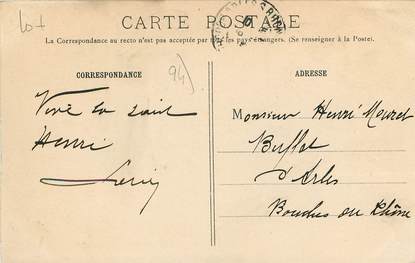 Lot
CARTE POSTALE
La Correspondance au recto n'est pas acceptée par les pays étrangers. (Se renseigner à la Poste).
CORRESPONDANCE
94)
Vive la saint
Henri
ADRESSE
Monsieur Henri Mouret
Buffet
d'Arles
Bouches du Rhône